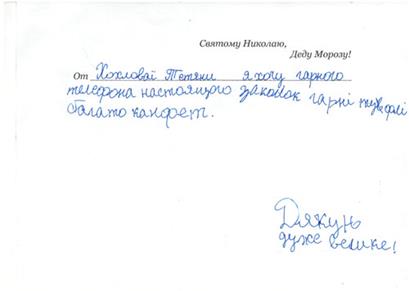 Святому Николаю,
Деду Морозу!
От Хохловаї Тетяни я хочу гарного
телефона настоящого заколок гарні туфелі
Багато канфет.
Дякунь
дуже велике!